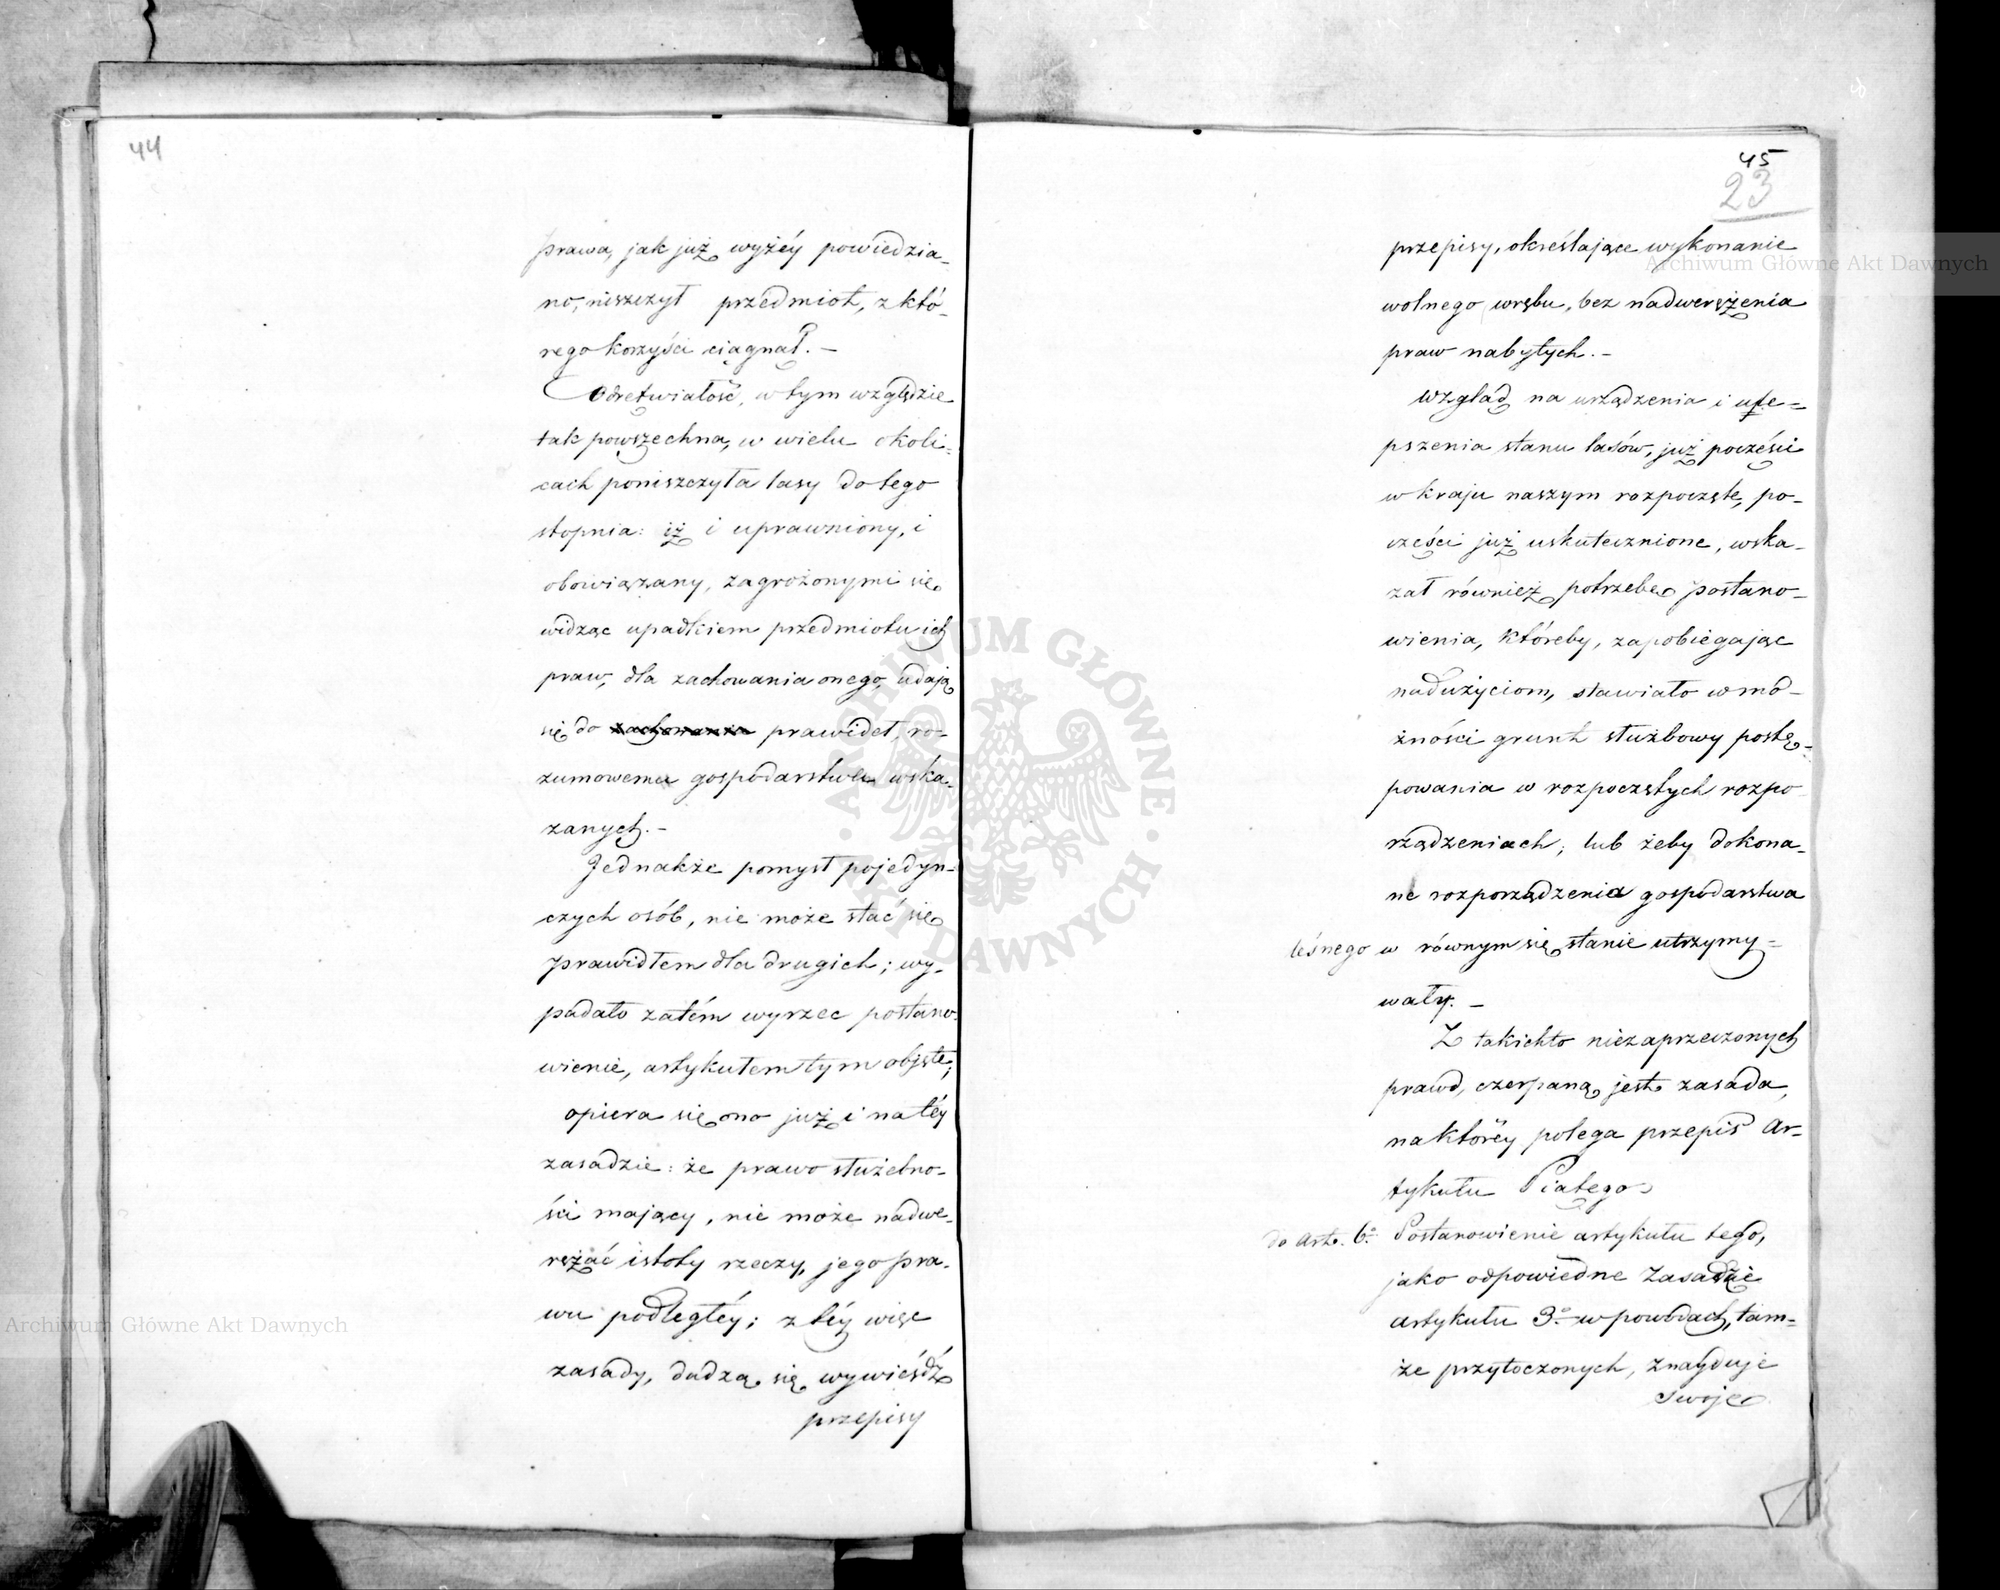 44
prawa, jak już wyżéy powiedzia-
no, niszczył przedmiot, z któ-
rego korzyści ciągnął. -
Odrętwiałość, w tym względzie
tak powszechna, w wielu okoli-
cach poniszczyła lasy do tego
stopnia: iż i uprawniony, i
obowiązany, zagrożonymi się
widząc upadkiem przedmiotu ich
praw, dla zachowania onego, udają
się do zachowania prawideł, ro-
zumowemu gospodarstwu wska-
zanych. -
Jednakże pomysł pojedyn-
czych osób, nie może stać się
prawidłem dla drugich; wy-
padało zatém wyrzec postano-
wienie, artykułem tym objęte;
opiera się ono już i na téy
zasadzie: że prawo służebno-
ści mający, nie może nadwe-
rężać istoty rzeczy, jego pra-
wu podległéy; z téy więc
zasady, dadzą się wywieśdź
przepisy
45
23
przepisy, określające wykonanie
wolnego wrębu, bez nadwerężenia
praw nabytych. -
Wzgląd na urządzenia i ule-
pszenia stanu lasów, już poczęści
w kraju naszym rozpoczęte, po-
części już uskutecznione, wska-
zał również potrzebę postano-
wienia, któreby, zapobiegając
nadużyciom, stawiało w mo-
żności grunt służbowy postę-
powania w rozpoczętych rozpo-
rządzeniach; lub żeby dokona-
ne rozporządzenia gospodarstwa
leśnego w równym się stanie utrzymy-
wały. -
Z takichto niezaprzeczonych
prawd, czerpaną jest zasada,
na któréy polega przepis Ar-
tykułu Piątego
do Art. 6.° Postanowienie artykułu tego,
jako odpowiedne zasadzie
artykułu 3.° w powodach, tam-
że przytoczonych, znayduje
swoje
Archiwum Główne Akt Dawnych
Archiwum Główne Akt Dawnych
ARCHIWUM GŁÓWNE AKT DAWNYCH